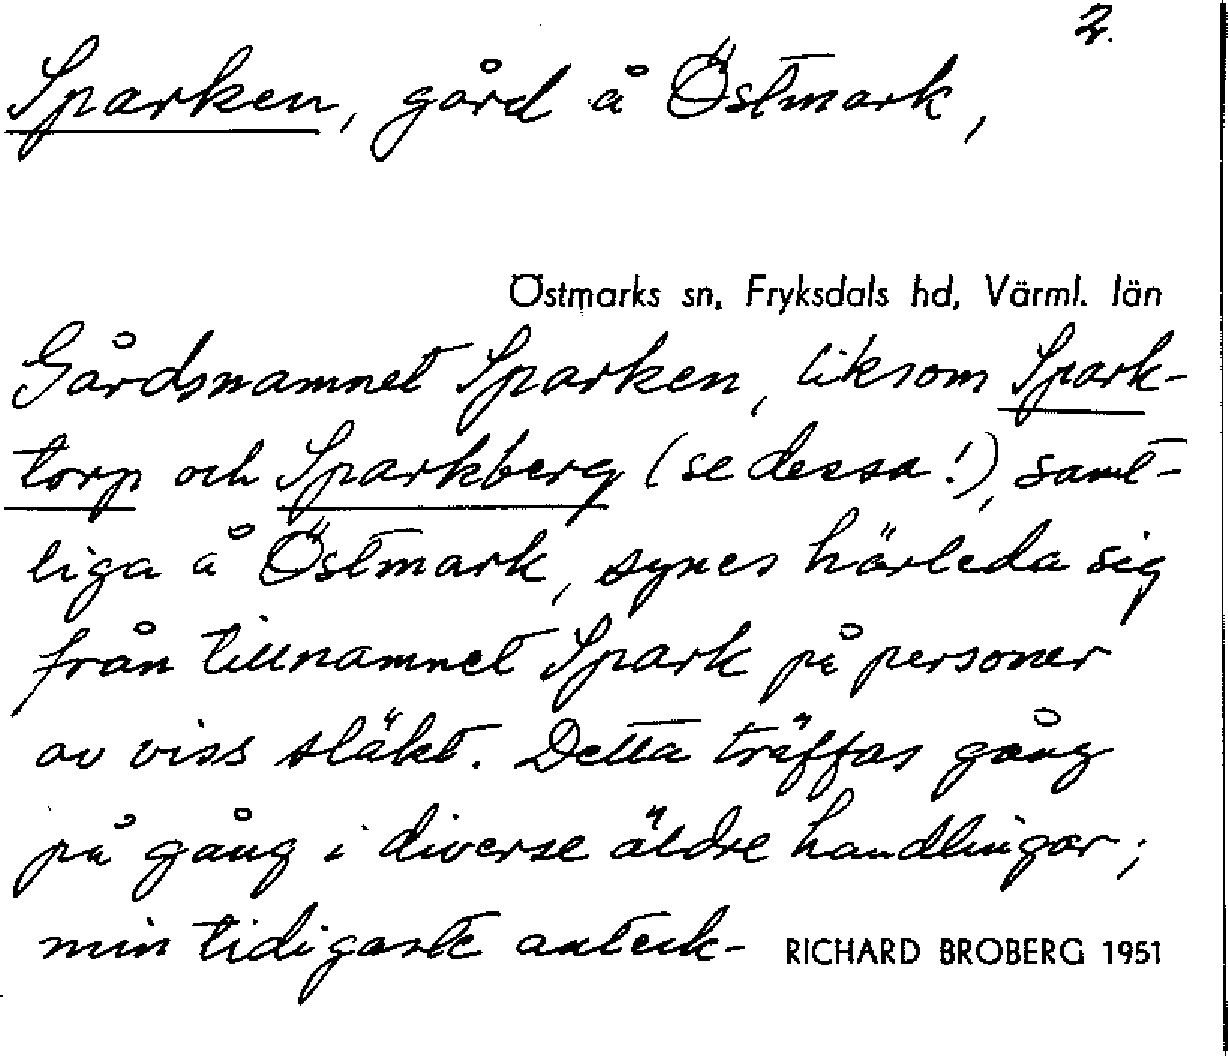 2.
Sparken, gård å Östmark,
Östmarks sn, Fryksdals hd, Värml. län
Gårdsnamnet Sparken, liksom Spark-
torp och Sparkberg (se dessa!), samt-
liga å Östmark, synes härleda sig
från tillnamnet Spark på personer
av viss släkt. Detta träffas gång
på gång i diverse äldre handlingar;
min tidigaste anteck-
RICHARD BROBERG 1951